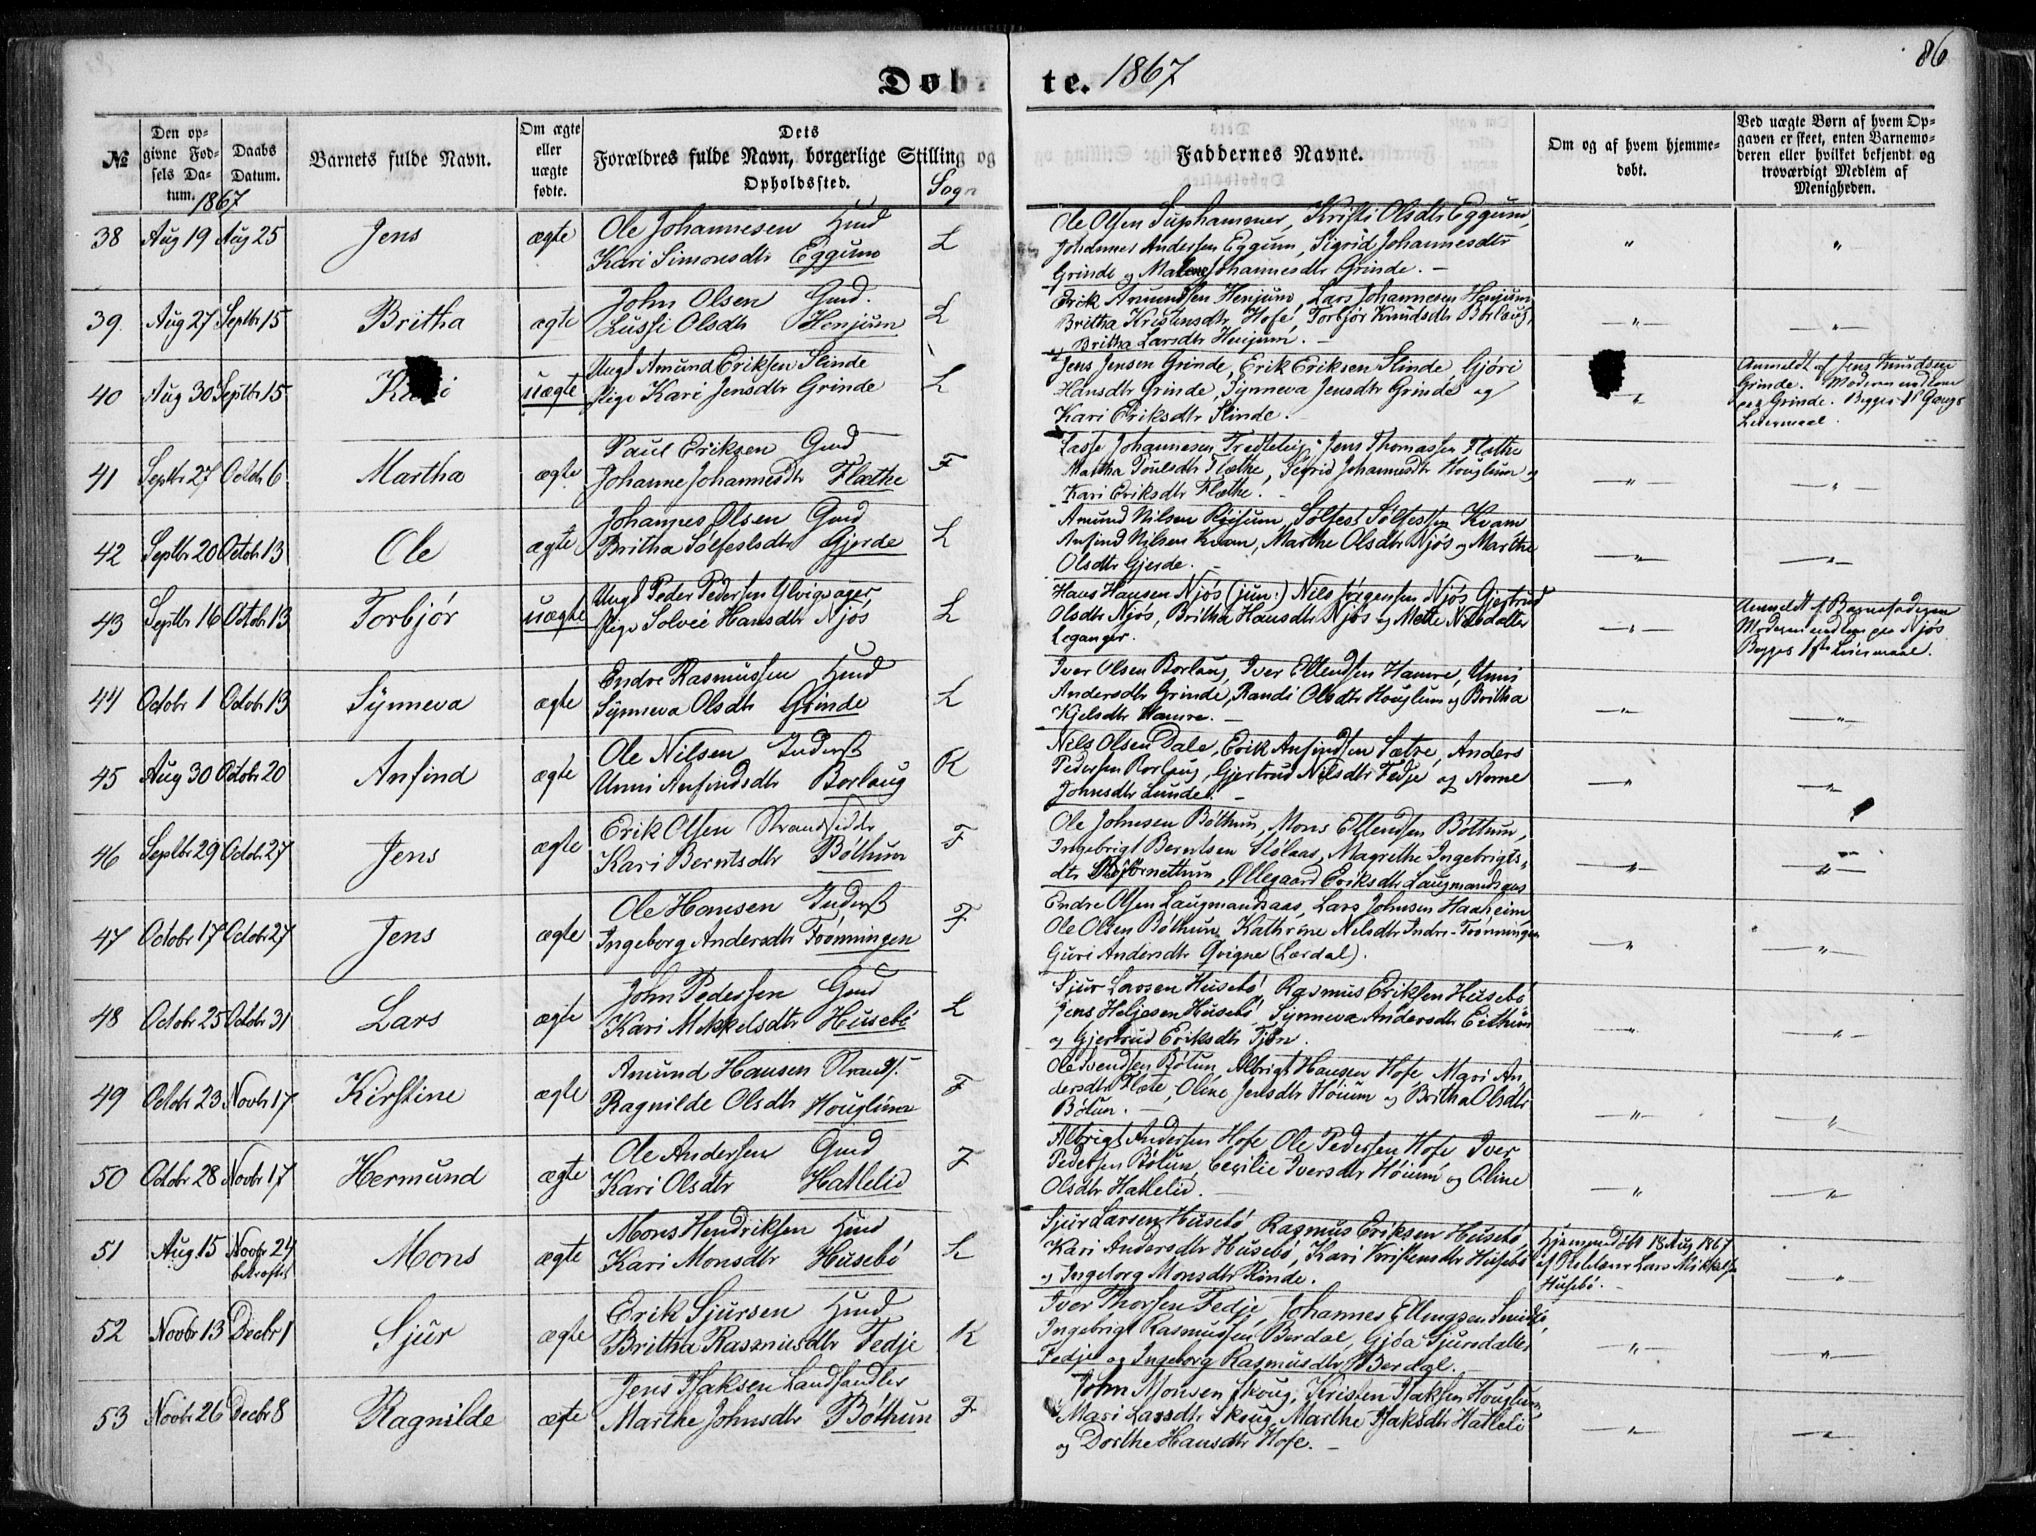 86
Døbte. 1867
№
Den opgivne Fødsels Datum. 1867
Daabs Datum.
Barnets fulde Navn.
Om ægte eller uægte fødte.
Dets Forældres fulde Navn, borgerlige Stilling og Opholdssted.
Sogn
Faddernes Navne.
Om og af hvem hjemmedøbt.
Ved uægte Børn af hvem Opgaven er skeet, enten Barnemoderen eller hvilket bekjendt og troværdigt Medlem af Menigheden.
38 Aug 19 Aug 25 Jens ægte
Ole Johannesen Hmd
Kari Simonsdtr Eggum L
Ole Olsen Suphammer, Kristi Olsdtr Eggum,
Johannes Andersen Eggum, Sigrid Johannesdtr
Grinde og Malene Johannesdtr Grinde. —
39. Aug 27 Septbr 15 Britha ægte
John Olsen Gmd.
Lussi Olsdtr Henjum L
Erik Amundsen Henjum, Lars Johannesen Henjum
Britha Kristensdtr Hofe, Torbjør Knudsdtr Borlaug,
og Britha Larsdtr Henjum. —
40 Aug 30 Septbr 15 Kari uægte
Ungk Amund Eriksen Slinde
Pige Kari Jensdtr Grinde L
Jens Jensen Grinde, Erik Eriksen Slinde, Gjøri
Hansdtr Grinde, Synneva Jensdtr Grinde og
Kari Eriksdtr Slinde. —
Anmeldt af Jens Knudsen
Grinde. Moderen
paa Grinde. Begges 1ste Gangs
Leiermaal.
41 Septbr 27 Octobr 6 Martha ægte
Paul Eriksen Gmd
Johanne Johannesdtr Flæthe F
Lasse Johannesen Tredteteig, Jens Thomassen Flæthe
Martha Poulsdtr Flæthe, Sigrid Johannesdtr Houglum og
Kari Eriksdtr Flæthe. —
42 Septbr 20 Octobr 13 Ole ægte
Johannes Olsen Gmd
Britha Sølfestsdtr Gjerde L
Amund Nilsen Risum, Sølfest Sølfestsen Kvam
Anfind Nilsen Kvam, Marthe Olsdtr Njøs og Marthe
Olsdtr Gjerde. —
43 Septbr 16 Octobr 13 Torbjør uægte
Ungk Peder Pedersen Ylvigsager,
Pige Solvei Hansdtr Njøs L
Hans Hansen Njøs (jun:) Nils Jørgensen Njøs Gjertrud
Olsdtr Njøs, Britha Hansdtr Njøs og Mette Nilsdatter
Leganger.
Anmeldt af Barnefaderen
Moderen paa Njøs
Begges 1ste Leiermaal.
44 Octobr 1 Octobr 13 Synneva ægte
Endre Rasmussen Hmd
Synneva Olsdtr Grinde L
Iver Olsen Borlaug, Iver Ellendsen Hamre, Unni
Andersdtr Grinde, Randi Olsdtr Houglum og Britha
Kjelsdtr Hamre. —
45 Aug 30 Octobr 20 Anfind ægte
Ole Nilsen Inderst
Unni Anfindsdtr Borlaug K
Nils Olsen Dale, Erik Anfindsen Sætre, Anders
Pedersen Borlaug, Gjertrud Nilsdtr Fedje og Norne
Johnsdtr Lunde. —
46 Septbr 29 Octobr 27 Jens ægte
Erik Olsen Strandsiddr
Kari Berntsdtr Bøthum F
Ole Johnsen Bøthum, Mons Ellendsen Bøthum,
Ingebrigt Berntsen Stølaas, Magrethe Ingebrigts-
dtr Bjørnettum, Øllegaard Eriksdtr Laugmandsaas
47 Octobr 17 Octobr 27 Jens ægte
Ole Hansen Inderst
Ingeborg Andersdtr Frønningen F
Endre Olsen Laugmandsaas, Lars Johnsen Haaheim
Ole Olsen Bøthum Kathrine Nelsdtr Indre-Frønningen
Guri Andersdtr Qvigne (Lærdal).
48 Octobr 25 Octobr 31 Lars ægte
John Pedersen Gmd
Kari Mikkelsdtr Husebø L
Sjur Larsen Husebø, Rasmus Eriksen Husebø
Jens Heljesen Husebø, Synneva Andersdtr Eithun
og Gjertrud Eriksdtr Tjøn.
49 Octobr 23 Novbr 17 Kirstine ægte
Amund Hansen Strands.
Ragnilde Olsdtr Houglum F
Ole Svendsen Bøtun, Albrigt Hansen Hofe, Mari An-
dersdtr Flæte, Oline Jensdtr Høium og Britha Olsdtr
Bøtun. —
50 Octobr 28 Novbr 17 Hermund ægte
Ole Andersen Gmd
Kari Olsdtr Hatlelid F
Albrigt Andersen Hofe, Ole Pedersen Hofe, Iver
Pedersen Bøtun, Cecilie Iversdtr Høium og Oline
Olsdtr Hatlelid. —
51 Aug 15 Novbr 24 bekræftet Mons ægte
Mons Hendriksen Hmd
Kari Monsdtr Husebø L
Sjur Larsen Husebø, Rasmus Eriksen Husebø,
Kari Andersdtr Husebø, Kari Kristensdtr Husebø
og Ingeborg Monsdtr Rinde.
Hjemmedøbt 18 Aug 1867
af Lars Mikkelsen
Husebø.
52 Novbr 13 Decbr 1 Sjur ægte
Erik Sjursen Hmd
Britha Rasmusdtr Fedje K
Iver Thorsen Fedje, Johannes Ellingsen
Ingebrigt Rasmussen Berdal, Gjøa Sjursdatter
Fedje og Ingeborg Rasmusdtr Berdal.
53 Novbr 26 Decbr 8 Ragnilde ægte
Jens Isaksen Landhandler
Marthe Johnsdtr Bøthun F
John Monsen Skoug, Kristen Isaksen Houglum,
Mari Larsdtr Skoug, Marthe Isaksdtr Hatleli
og Dorthe Hansdtr Hofe. —